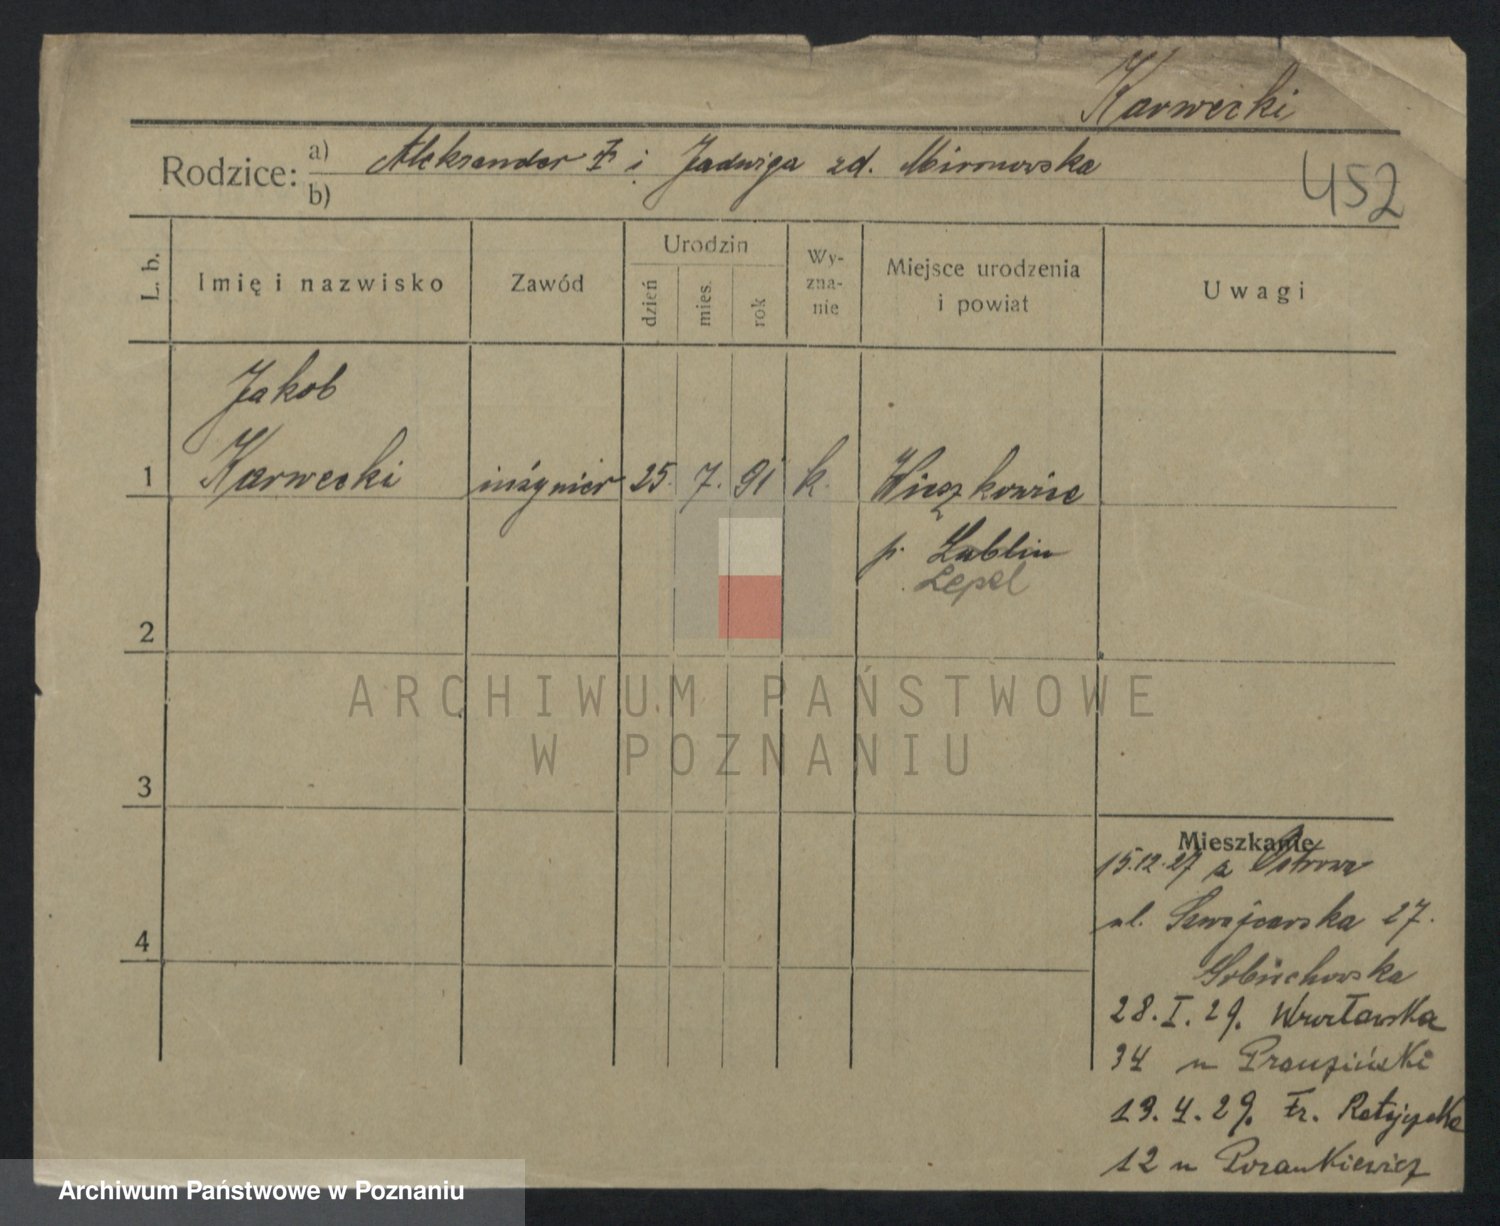 Karwecki
Rodzice: a) Aleksander i Jadwiga zd. Mironowska
b)
452
L. b.
Imię i nazwisko
Zawód
Urodzin
dzień
mies.
rok
Wy-
zna-
nie
Miejsce urodzenia
i powiat
Uwagi
Jakob
1 Karwecki inżynier 25. 7. 91 k. Wieszkowice
p. Lublin
Lepel
2
ARCHIWUM PAŃSTWOWE
W POZNANIU
3
Mieszkanie
15.12.27 z Ostrowa
4
ul. Szwajcarska 27.
28.I.29. Wrocławska
34
12
Archiwum Państwowe w Poznaniu